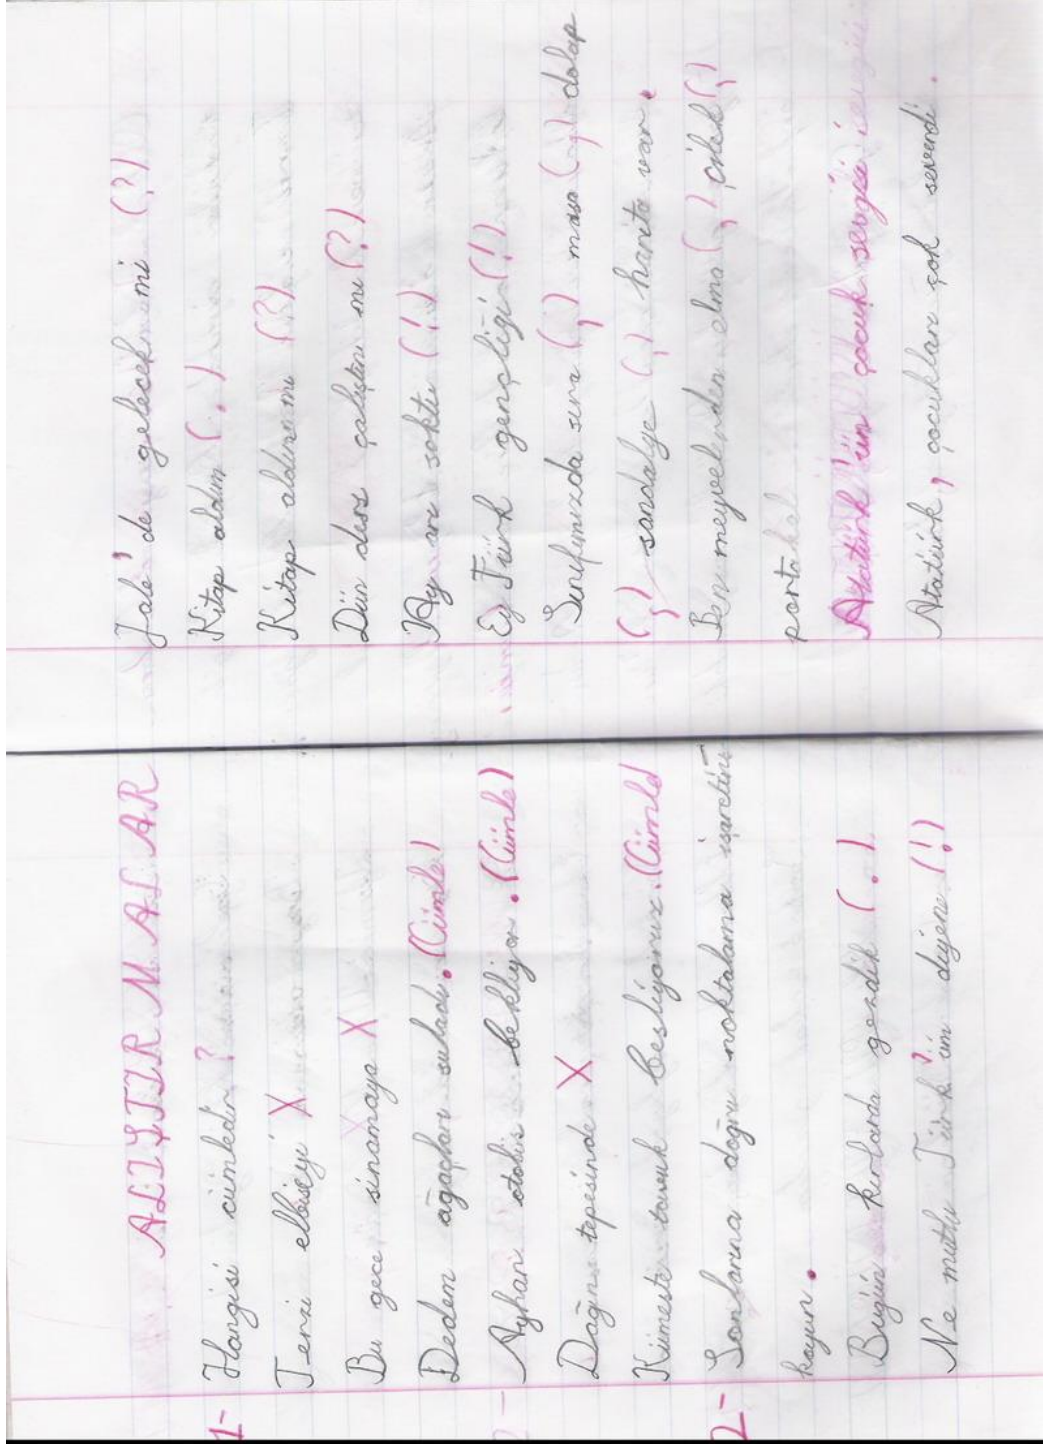 ALIŞTIRMALAR
1- Hangisi cümledir ?
Terzi elbiseyi X
Bu gece sinamaya X
Dedem ağaçları suladı. (Cümle)
Ayhan otobüs bekliyor. (Cümle)
Dağın tepesinde X
Kümeste tavuk besliyoruz. (Cümle)
2- Sonlarına doğru noktalama işaretini
koyun.
Bugün kırlarda gezdik (.)
Ne mutlu Türk'üm diyene (!)
Jale'de gelecek mi (?)
Kitap aldım (.)
Kitap aldınmı (?)
Dün ders çalıştın mı (?)
Ay arı soktu (!)
Ey Türk gençliği (!)
Sınıfımızda sıra (,) masa (,) dolap
(,) sandalye (,) harita var.
Ben meyvelerden elma (,) çilek (,)
portakal
Atatürk'ün çocuk sevgisi
Atatürk, çocukları çok severdi.